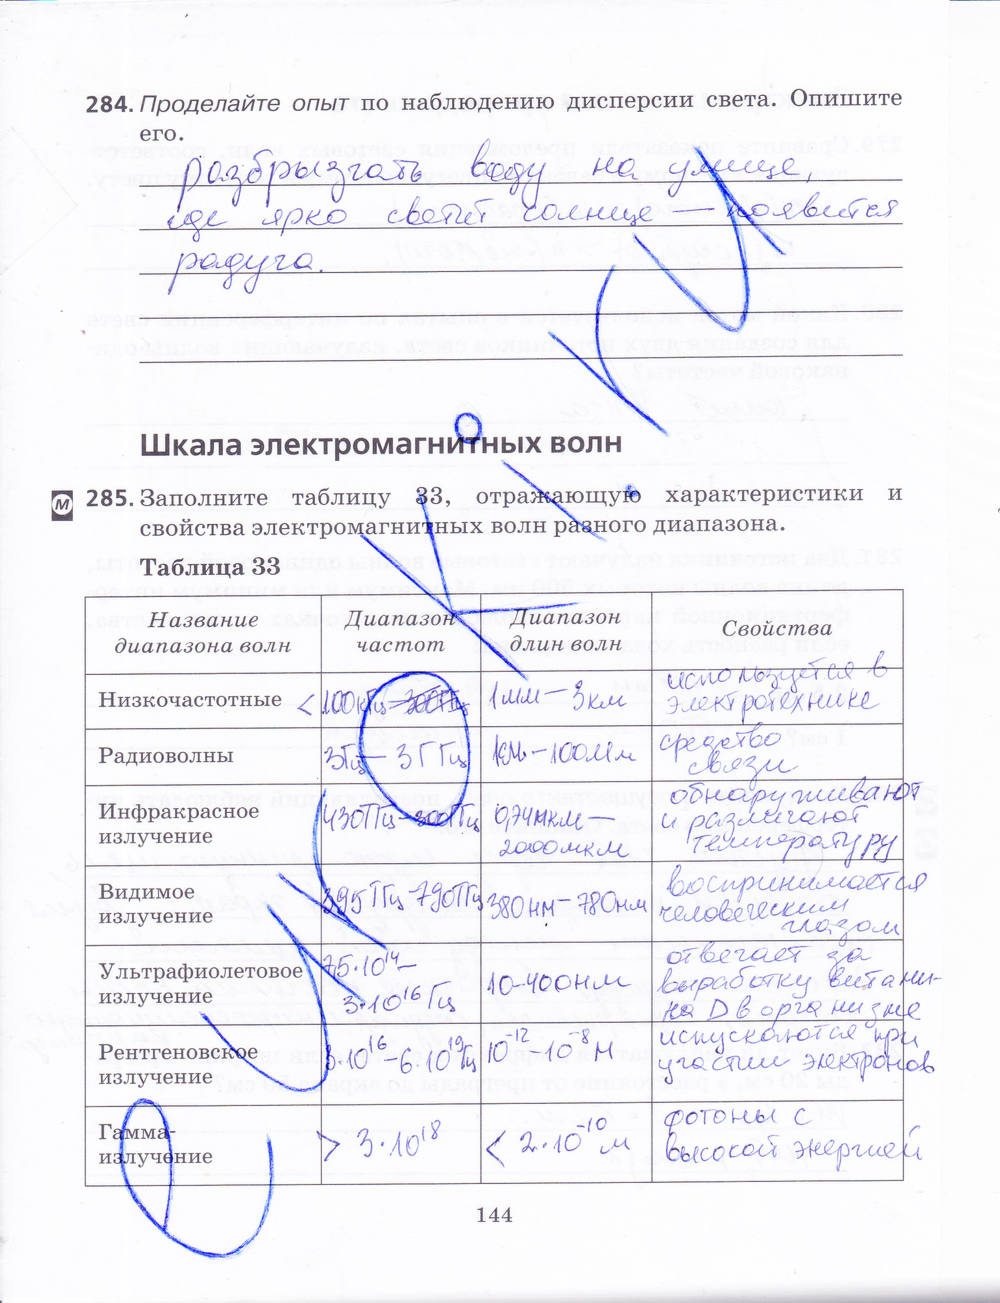 284. Проделайте опыт по наблюдению дисперсии света. Опишите
его.
разбрызгать воду на улице,
где ярко светит солнце — появится
радуга.
Шкала электромагнитных волн
М 285. Заполните таблицу 33, отражающую характеристики и
свойства электромагнитных волн разного диапазона.
Таблица 33
Название диапазона волн | Диапазон частот | Диапазон длин волн | Свойства
Низкочастотные | < 100 кГц | 1мм – 3км | используется в электротехнике
Радиоволны | 3Гц – 3ГГц | 100Мм | средство связи
Инфракрасное излучение | 430ТГц – 300ГГц | 0,74мкм – 2000мкм | обнаруживают и различают температуру
Видимое излучение | 395ТГц - 790ТГц | 380нм – 780нм | воспринимается человеческим глазом
Ультрафиолетовое излучение | 75·10¹⁴ – 3·10¹⁶ Гц | 10-400нм | отвечает за выработку витамина D в организме
Рентгеновское излучение | 3·10¹⁶ – 6·10¹⁹ Гц | 10⁻¹² - 10⁻⁸ м | испускаются при участии электронов
Гамма-излучение | > 3·10¹⁸ | < 2·10⁻¹⁰ м | фотоны с высокой энергией
144